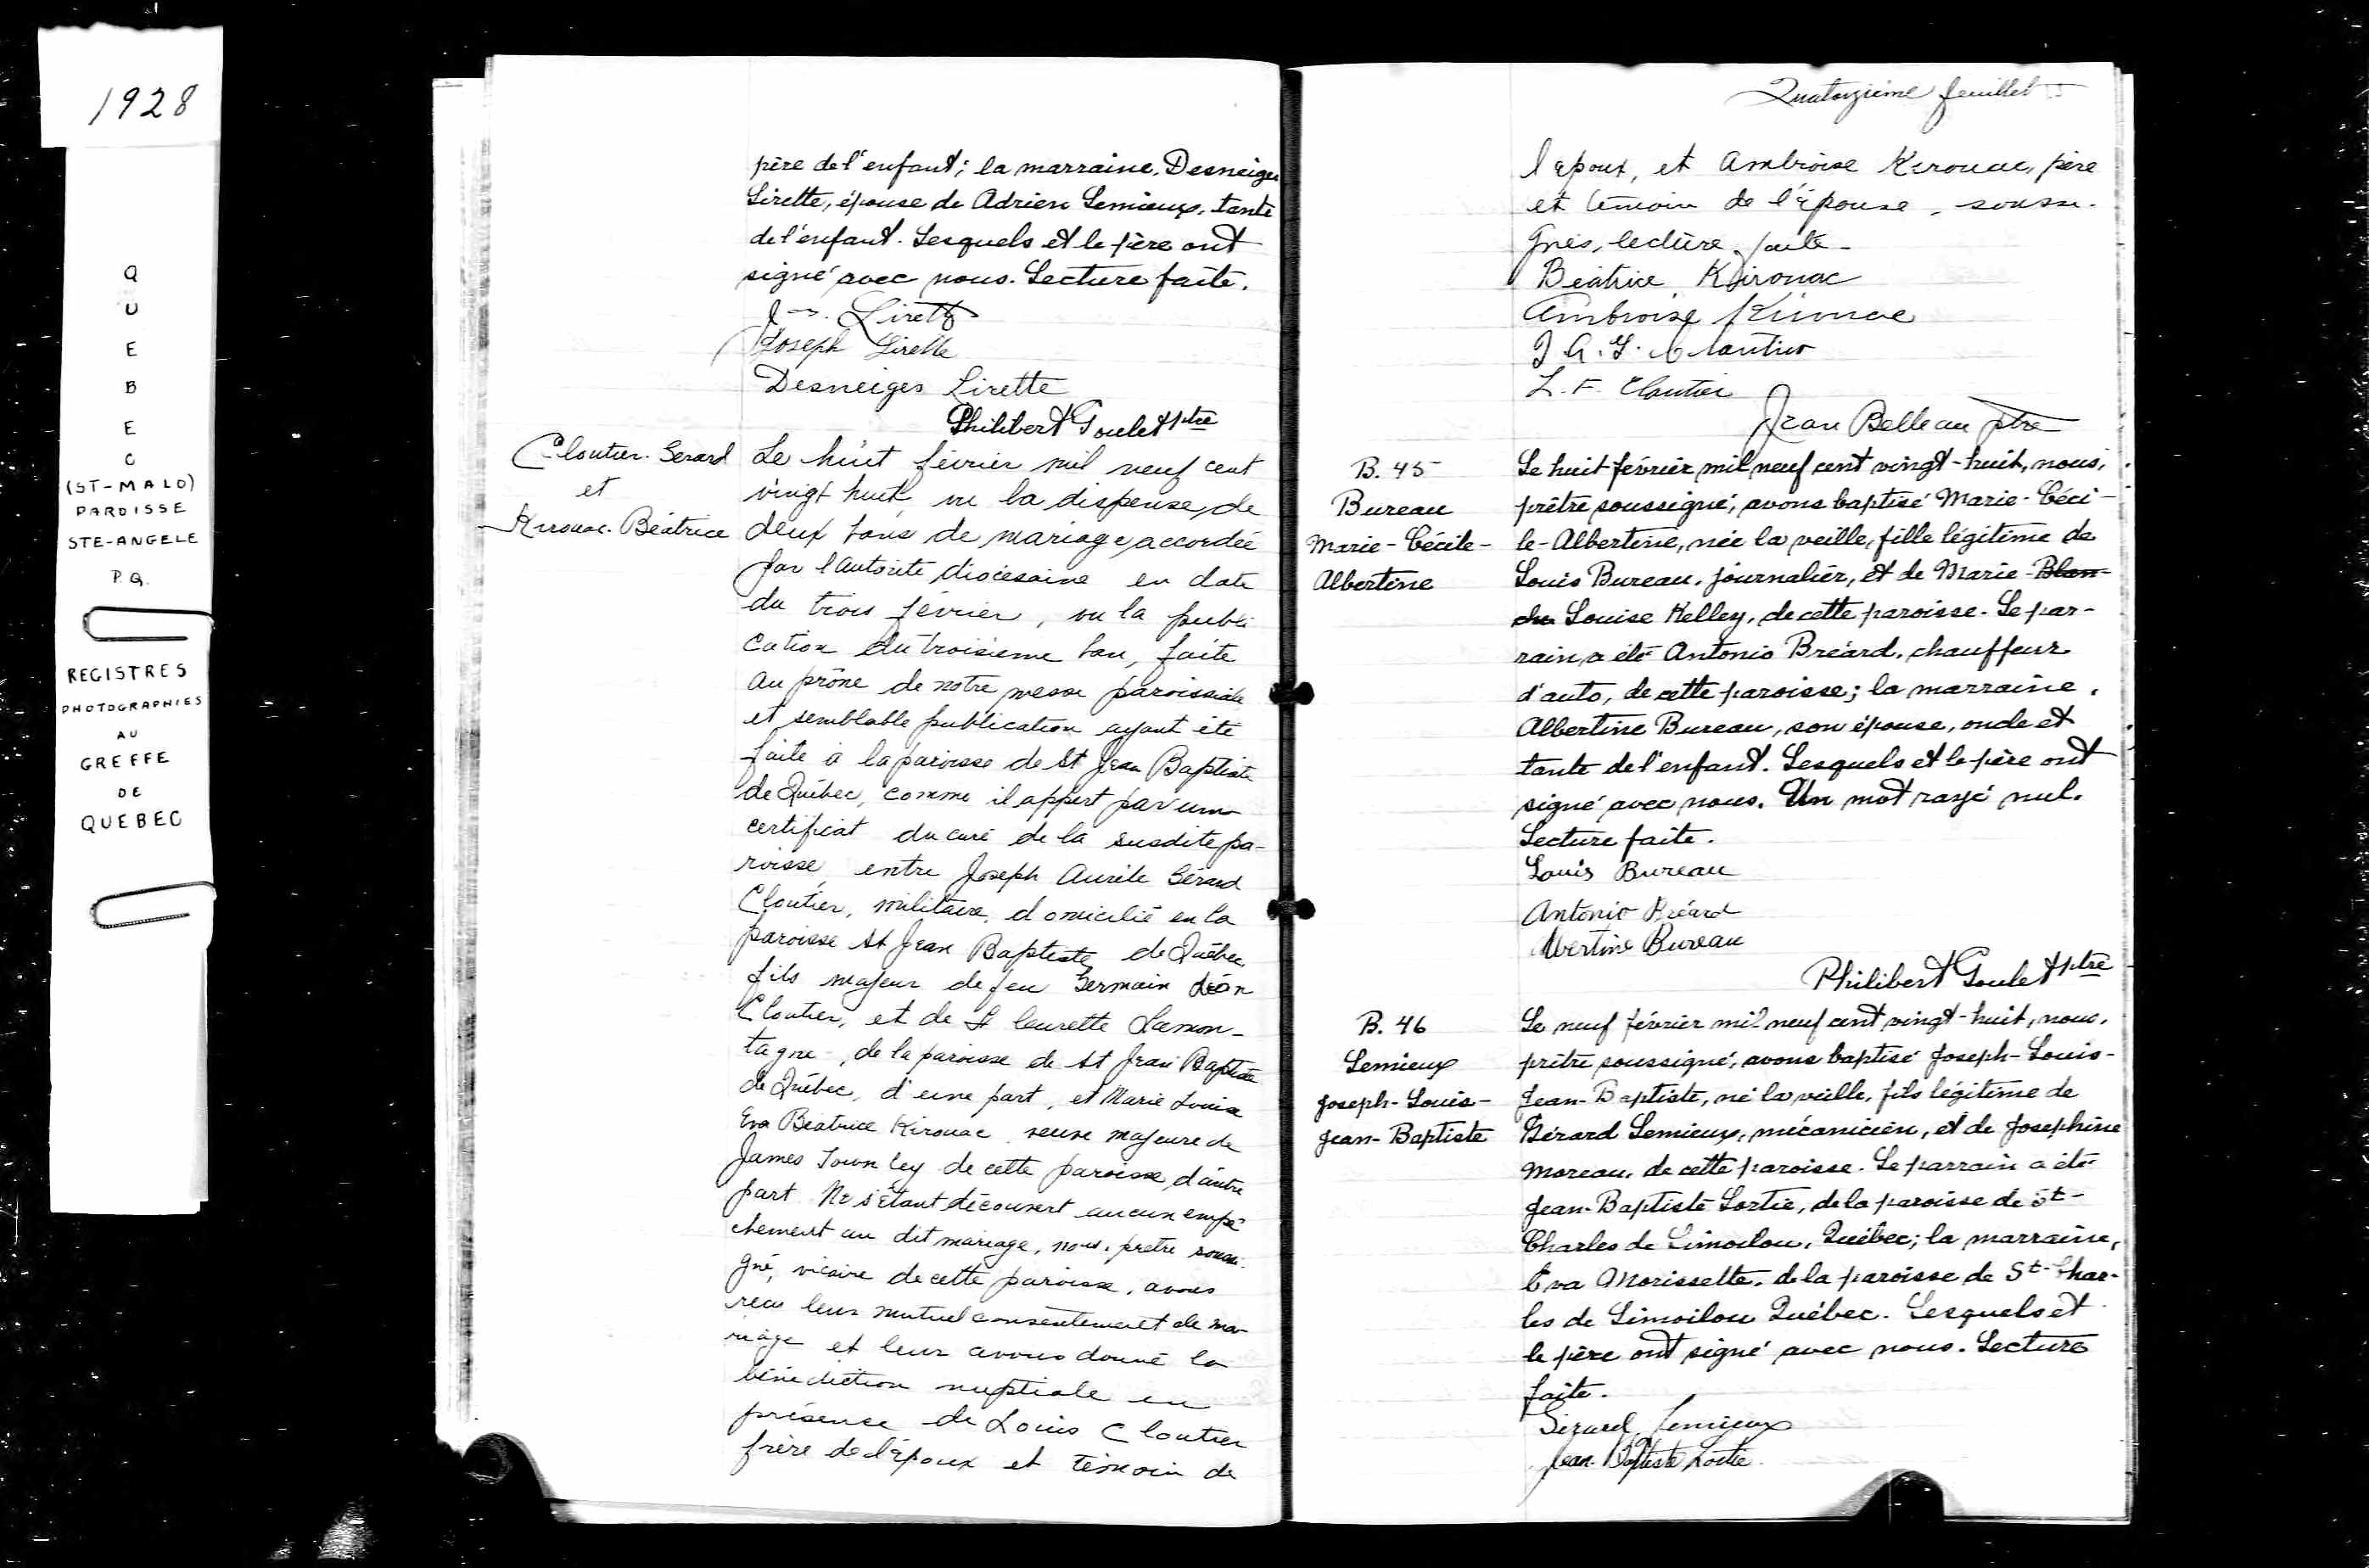 1928
Q
U
E
B
E
C
(ST-MALO)
PAROISSE
STE-ANGELE
P.Q.
REGISTRES
PHOTOGRAPHIES
AU
GREFFE
DE
QUEBEC
père de l'enfant; la marraine, Desneiges
Lirette, épouse de Adrien Lemieux, tante
de l'enfant. Lesquels et le père ont
signé avec nous. Lecture faite.
Lirette
Joseph Lirette
Desneiges Lirette
Philibert Goulet ptre
Cloutier. Gerard
et
Kirouac. Béatrice
Le huit février mil neuf cent
vingt huit, vu la dispense de
deux bans de mariage accordée
par l'autorité diocésaine en date
du trois février, vu la publi
cation du troisième ban, faite
au prône de notre messe paroissiale
et semblable publication ayant été
faite à la paroisse de St Jean Baptiste
de Québec, comme il appert par un
certificat du curé de la susdite pa-
roisse entre Joseph Aurèle Gérard
Cloutier, militaire, domicilié en la
paroisse St Jean Baptiste de Québec
fils majeur de feu Germain Léon
Cloutier, et de Laurette Lamon-
tagne, de la paroisse de St Jean Baptiste
de Québec, d'une part, et Marie Louise
Eva Béatrice Kirouac veuve majeure de
James Townley de cette paroisse d'autre
part. Ne s'étant découvert aucun empê-
chement au dit mariage, nous, prêtre soussi-
gné, vicaire de cette paroisse, avons
reçu leur mutuel consentement de ma-
riage et leur avons donné la
bénédiction nuptiale en
présence de Louis Cloutier
frère de l'époux et témoin de
Quatorzième feuillet
l'époux, et Ambroise Kirouac, père
et témoin de l'épouse, soussi-
gnés, lecture faite.
Béatrice Kirouac
Ambroise Kirouac
J.A.G. Cloutier
L.F. Cloutier
Jean Belleau ptre
B. 45
Bureau
Marie-Cécile-
Albertine
Le huit février mil neuf cent vingt-huit, nous,
prêtre soussigné, avons baptisé Marie-Céci-
le-Albertine, née la veille, fille légitime de
Louis Bureau, journalier, et de Marie-Blan-
che Louise Kelley, de cette paroisse. Le par-
rain a été Antonio Bréard, chauffeur
d'auto, de cette paroisse; la marraine,
Albertine Bureau, son épouse, oncle et
tante de l'enfant. Lesquels et le père ont
signé avec nous. Un mot rayé nul.
Lecture faite.
Louis Bureau
Antonio Bréard
Albertine Bureau
Philibert Goulet ptre
B. 46
Lemieux
Joseph-Louis-
Jean-Baptiste
Le neuf février mil neuf cent vingt-huit, nous,
prêtre soussigné, avons baptisé Joseph-Louis-
Jean-Baptiste, né la veille, fils légitime de
Gérard Lemieux, mécanicien, et de Joséphine
Moreau, de cette paroisse. Le parrain a été
Jean-Baptiste Lortie, de la paroisse de St-
Charles de Limoilou, Québec; la marraine,
Eva Morissette, de la paroisse de St-Char-
les de Limoilou Québec. Lesquels et
le père ont signé avec nous. Lecture
faite.
Gérard Lemieux
Jean-Baptiste Lortie